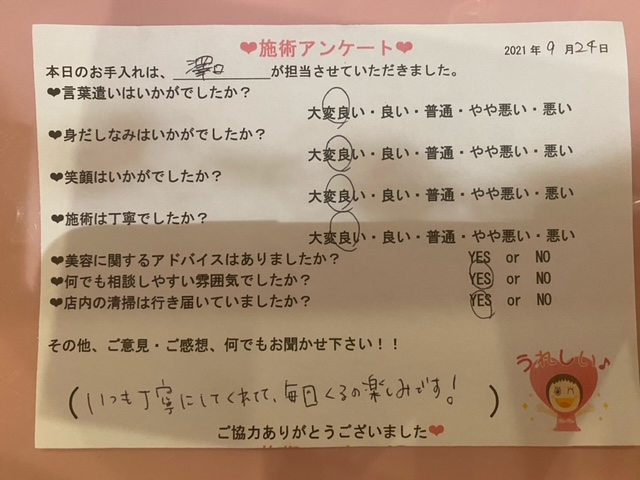 ❤施術アンケート❤
2021年9月24日
本日のお手入れは、澤口が担当させていただきました。
❤言葉遣いはいかがでしたか？
大変良い・良い・普通・やや悪い・悪い
❤身だしなみはいかがでしたか？
大変良い・良い・普通・やや悪い・悪い
❤笑顔はいかがでしたか？
大変良い・良い・普通・やや悪い・悪い
❤施術は丁寧でしたか？
大変良い・良い・普通・やや悪い・悪い
❤美容に関するアドバイスはありましたか？ YES or NO
❤何でも相談しやすい雰囲気でしたか？ YES or NO
❤店内の清掃は行き届いていましたか？ YES or NO
その他、ご意見・ご感想、何でもお聞かせ下さい！！
うれしい♪
(いつも丁寧にしてくれて、毎回くるの楽しみです！)
ご協力ありがとうございました❤